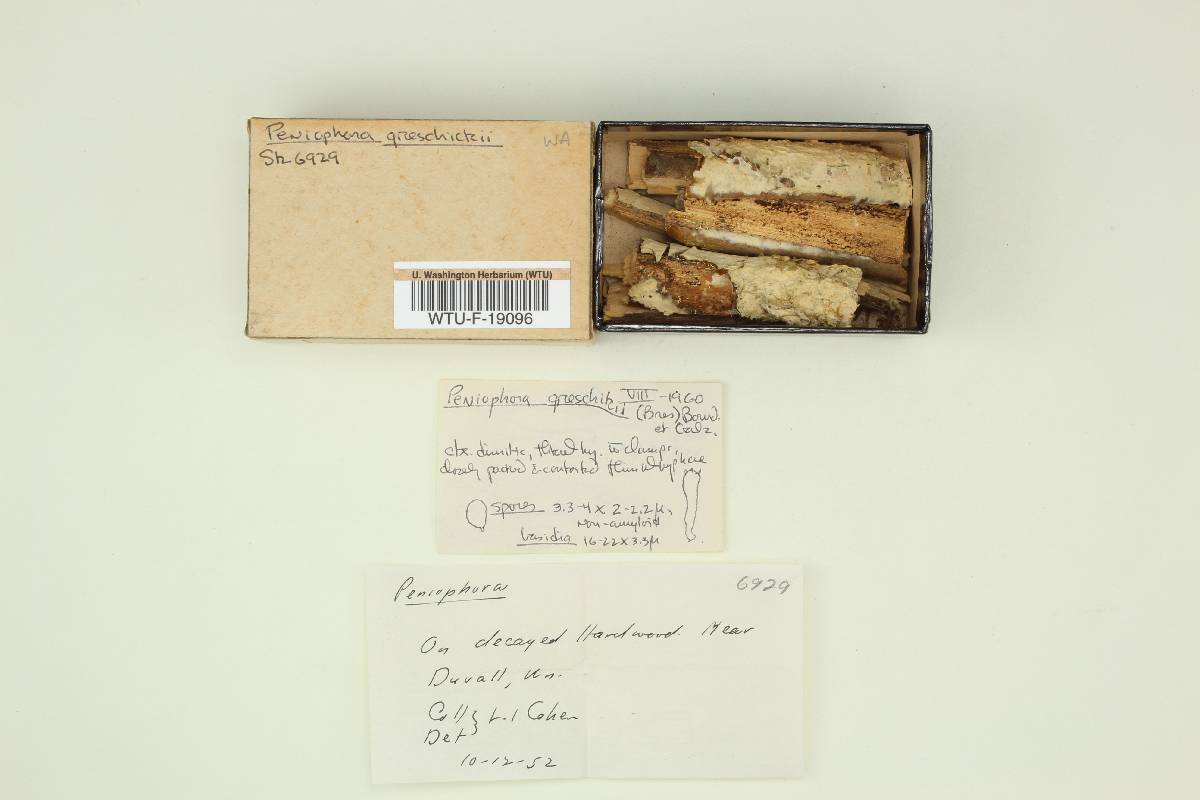 Peniophora greschickii
WA
Sh 6929
U. Washington Herbarium (WTU)
WTU-F-19096
Peniophora greschikii VIII-1960
(Bres) Bourd.
et Galz.
ctx. dimitic, thread hy. w clamps,
closely packed & contorted hyphae
spores 3.3-4 x 2-2.2µ,
non-amyloid
basidia 16-22 x 3.3µ
Peniophora 6929
On decayed Hardwood. Near
Duvall, Wn.
Coll } L. I Cohen
Det
10-12-52